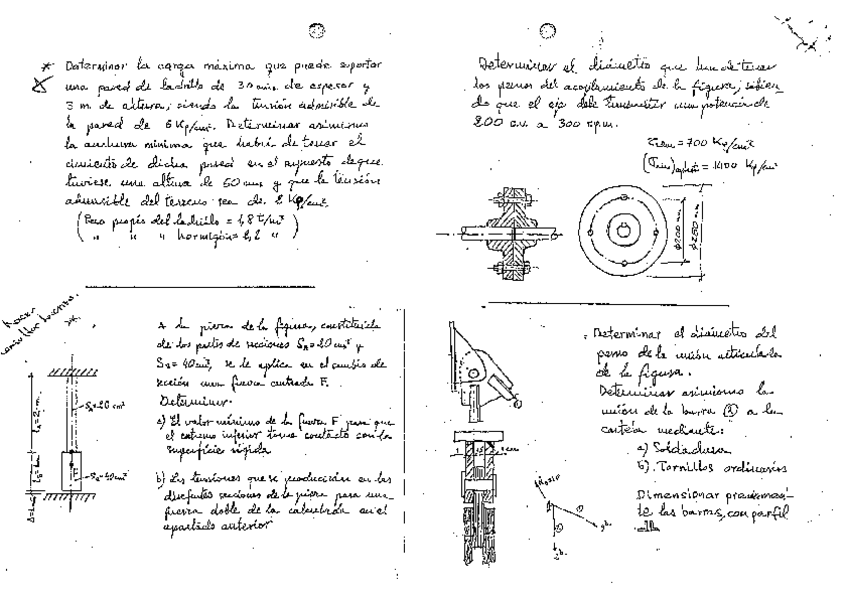 * Determinar la carga máxima que puede soportar
una pared de ladrillo de 30 cms. de espesor y
3 m. de altura, siendo la tensión admisible de
la pared de 6 Kp/cm². Determinar asimismo
la anchura mínima que habrá de tener el
cimiento de dicha pared en el supuesto de que
tuviese una altura de 50 cms y que la tensión
admisible del terreno sea de 2 Kp/cm².
(Peso propio del ladrillo = 1,8 t/m³)
" " " hormigón = 2,2 "
Determinar el diámetro que han de tener
los pernos del acoplamiento de la figura, sabien
do que el eje debe transmitir una potencia de
200 c.v. a 300 r.p.m.
= 700 Kp/cm²
= 1400 Kp/cm²
Φ200 mm
Φ250 mm
*
A la pieza de la figura, constituida
de dos partes de secciones S_A=20 cm² y
S_B= 40 cm², se le aplica en el cambio de
sección una fuerza centrada F.
Determinar:
a) El valor mínimo de la fuerza F para que
el extremo inferior tome contacto con la
superficie rígida
b) Las tensiones que se producirán en las
diferentes secciones de la pieza para una
fuerza doble de la calculada en el
apartado anterior
S_A=20 cm²
S_B=40 cm²
Determinar el diámetro del
perno de la unión articulada
de la figura.
Determinar asimismo la
unión de la barra ② a la
cartela mediante:
a) Soldadura
b) Tornillos ordinarios
Dimensionar previamen-
te las barras, con perfil